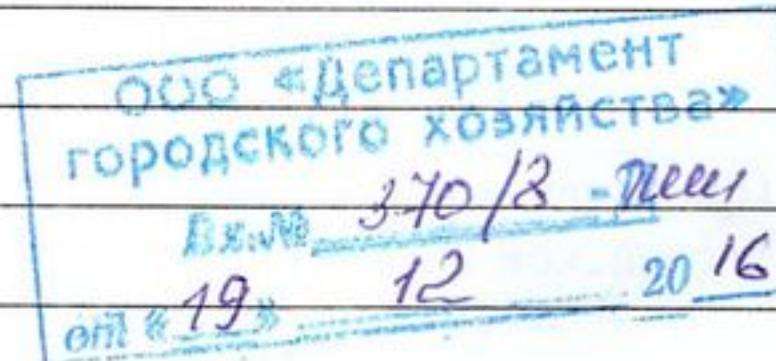 ООО «Департамент
городского хозяйства»
Вх.№ 370/8
от «19» 12 2016